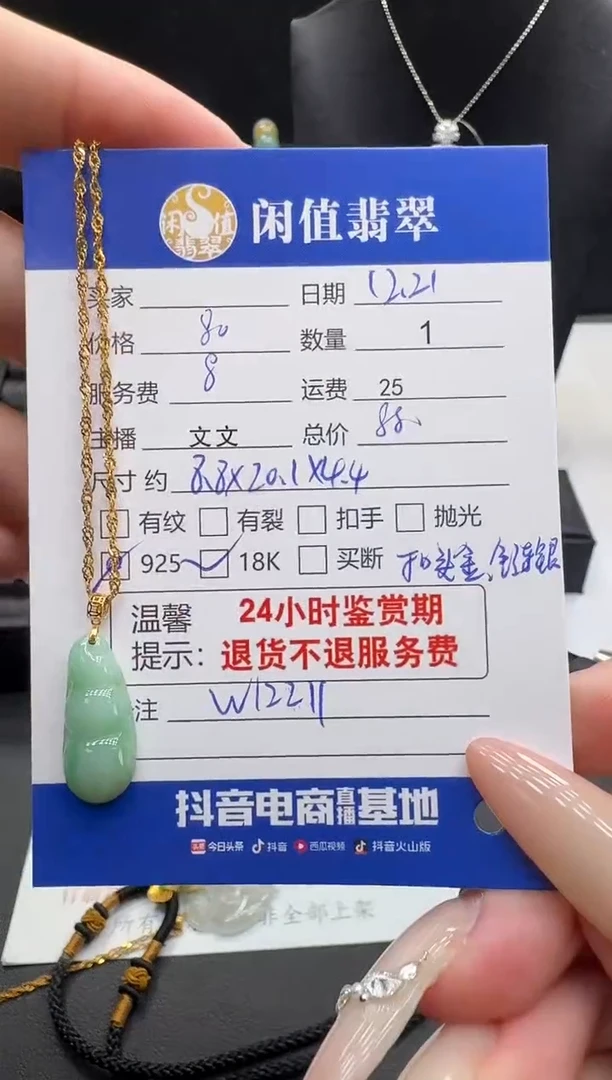 闲值翡翠
闲值翡翠
卖家 日期 12.21
价格 80 数量 1
服务费 8 运费 25
主播 文文 总价 88
尺寸约 8.8X20.1X4.4
有纹 有裂 扣手 抛光
925 18K 买断
温馨提示: 24小时鉴赏期
退货不退服务费
注 W12211
抖音电商直播基地
头条 今日头条 抖音 西瓜视频 抖音火山版
非全部上架